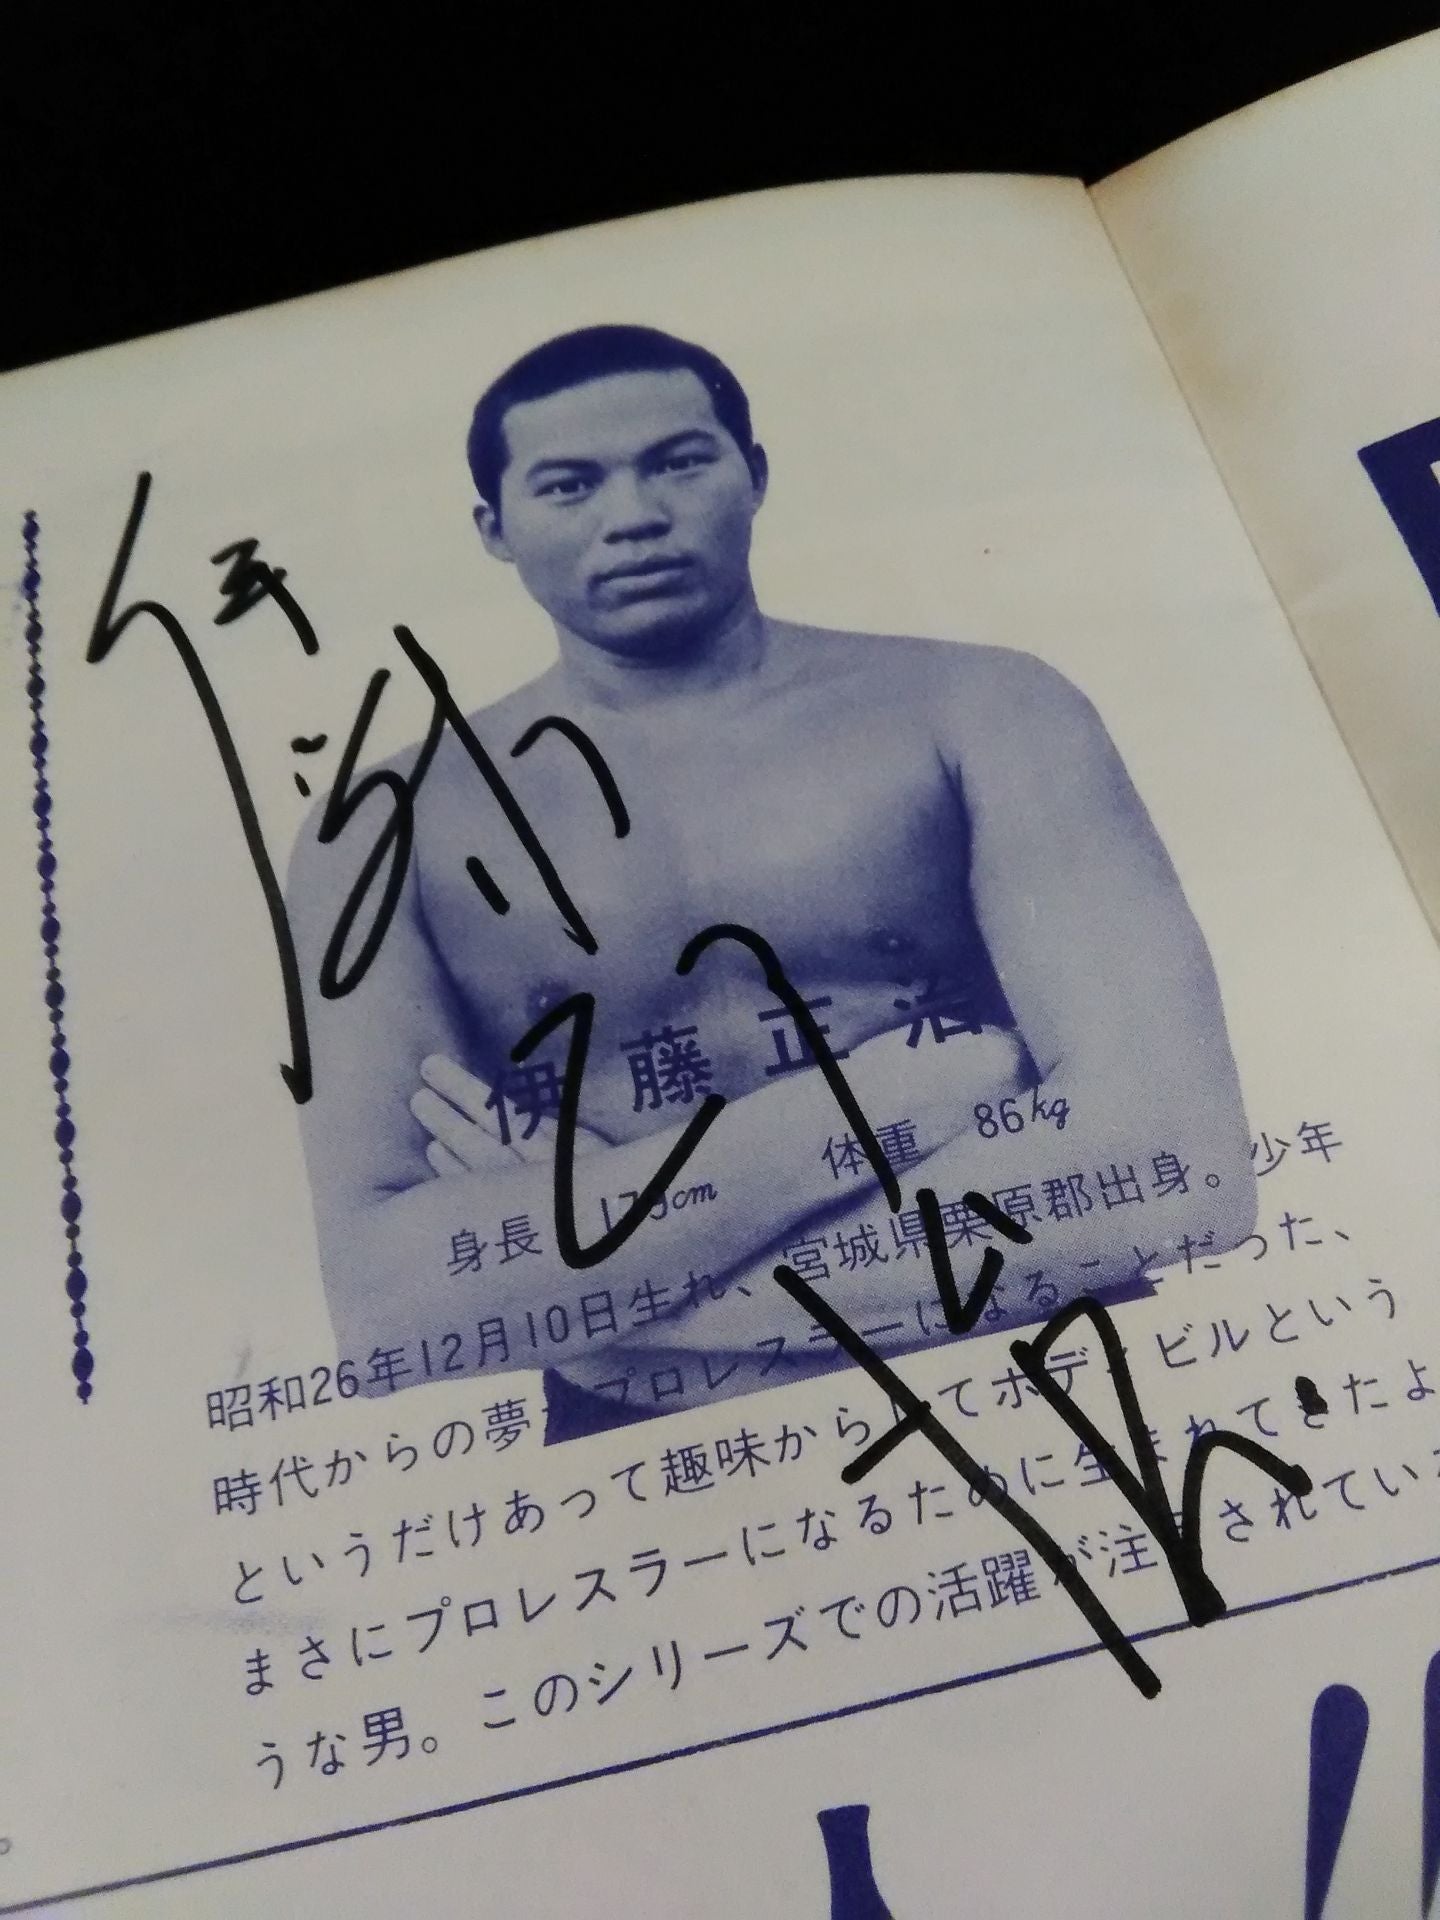 伊藤正治
身長 175cm 体重 86kg
昭和26年12月10日生れ、宮城県栗原郡出身。少年
時代からの夢がプロレスラーになることだった、
というだけあって趣味からしてボディビルという
まさにプロレスラーになるために生まれてきたよ
うな男。このシリーズでの活躍が注目されている